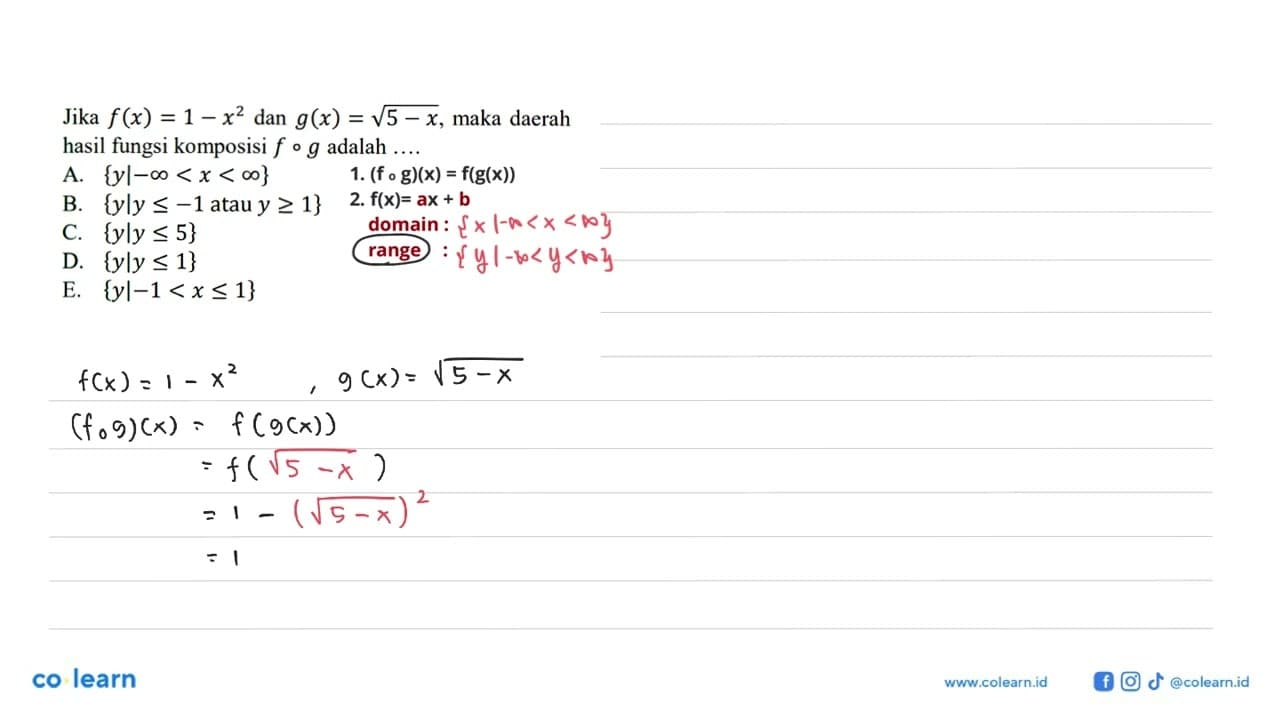 Jika f(x) = 1 − x² dan g(x) = √(5 − x), maka daerah
hasil fungsi komposisi f ∘ g adalah ....
A. {y|−∞ < x < ∞}
B. {y|y ≤ −1 atau y ≥ 1}
C. {y|y ≤ 5}
D. {y|y ≤ 1}
E. {y|−1 < x ≤ 1}
1. (f ∘ g)(x) = f(g(x))
2. f(x)= ax + b
domain : {x|-∞<x<∞}
range : {y|-∞<y<∞}
f(x) = 1 - x² , g(x) = √(5-x)
(f∘g)(x) = f(g(x))
= f(√(5-x))
= 1 - (√(5-x))²
= 1
co learn
www.colearn.id
@colearn.id